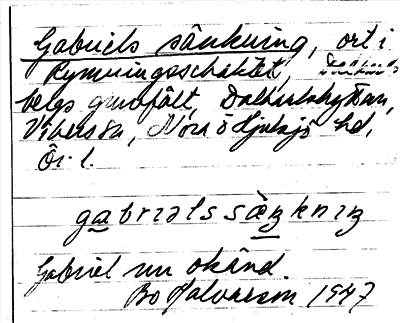 Gabriels sänkning, ort i
Rymningsschaktet,
bergs gruvfält, Dalkarlshyttan,
Vikers sn, Nora o Hjulsjö hd,
Ör. l.
gabrɪəls sæ̀ŋknɪŋ
Gabriel nu okänd.
Bo Halvarson 1947